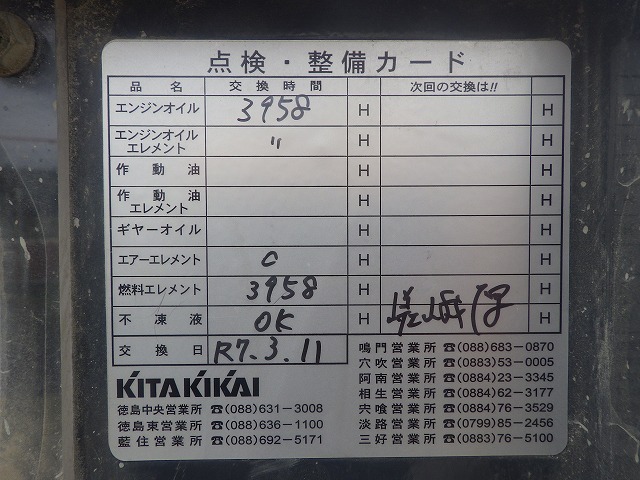 点検・整備カード
品名 交換時間 次回の交換は!!
エンジンオイル 3958 H H
エンジンオイル
エレメント 〃 H H
作動油 H H
作動油
エレメント H H
ギヤーオイル H H
エアーエレメント C H H
燃料エレメント 3958 H H
不凍液 OK H H
交換日 R7.3.11
KITAKIKAI
徳島中央営業所 ☎(088)631-3008
徳島東営業所 ☎(088)636-1100
藍住営業所 ☎(088)692-5171
鳴門営業所 ☎(088)683-0870
穴吹営業所 ☎(0883)53-0005
阿南営業所 ☎(0884)23-3345
相生営業所 ☎(0884)62-3177
宍喰営業所 ☎(0884)76-3529
淡路営業所 ☎(0799)85-2456
三好営業所 ☎(0883)76-5100